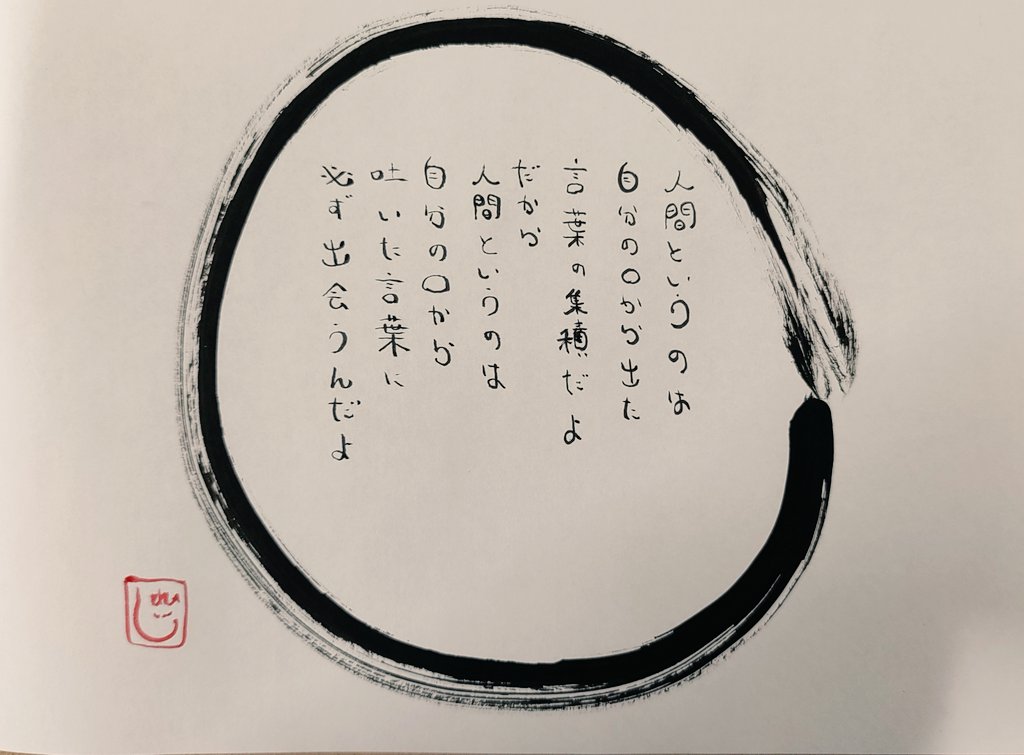 人間というのは
自分の口から出た
言葉の集積だよ
だから
人間というのは
自分の口から
吐いた言葉に
必ず出会うんだよ